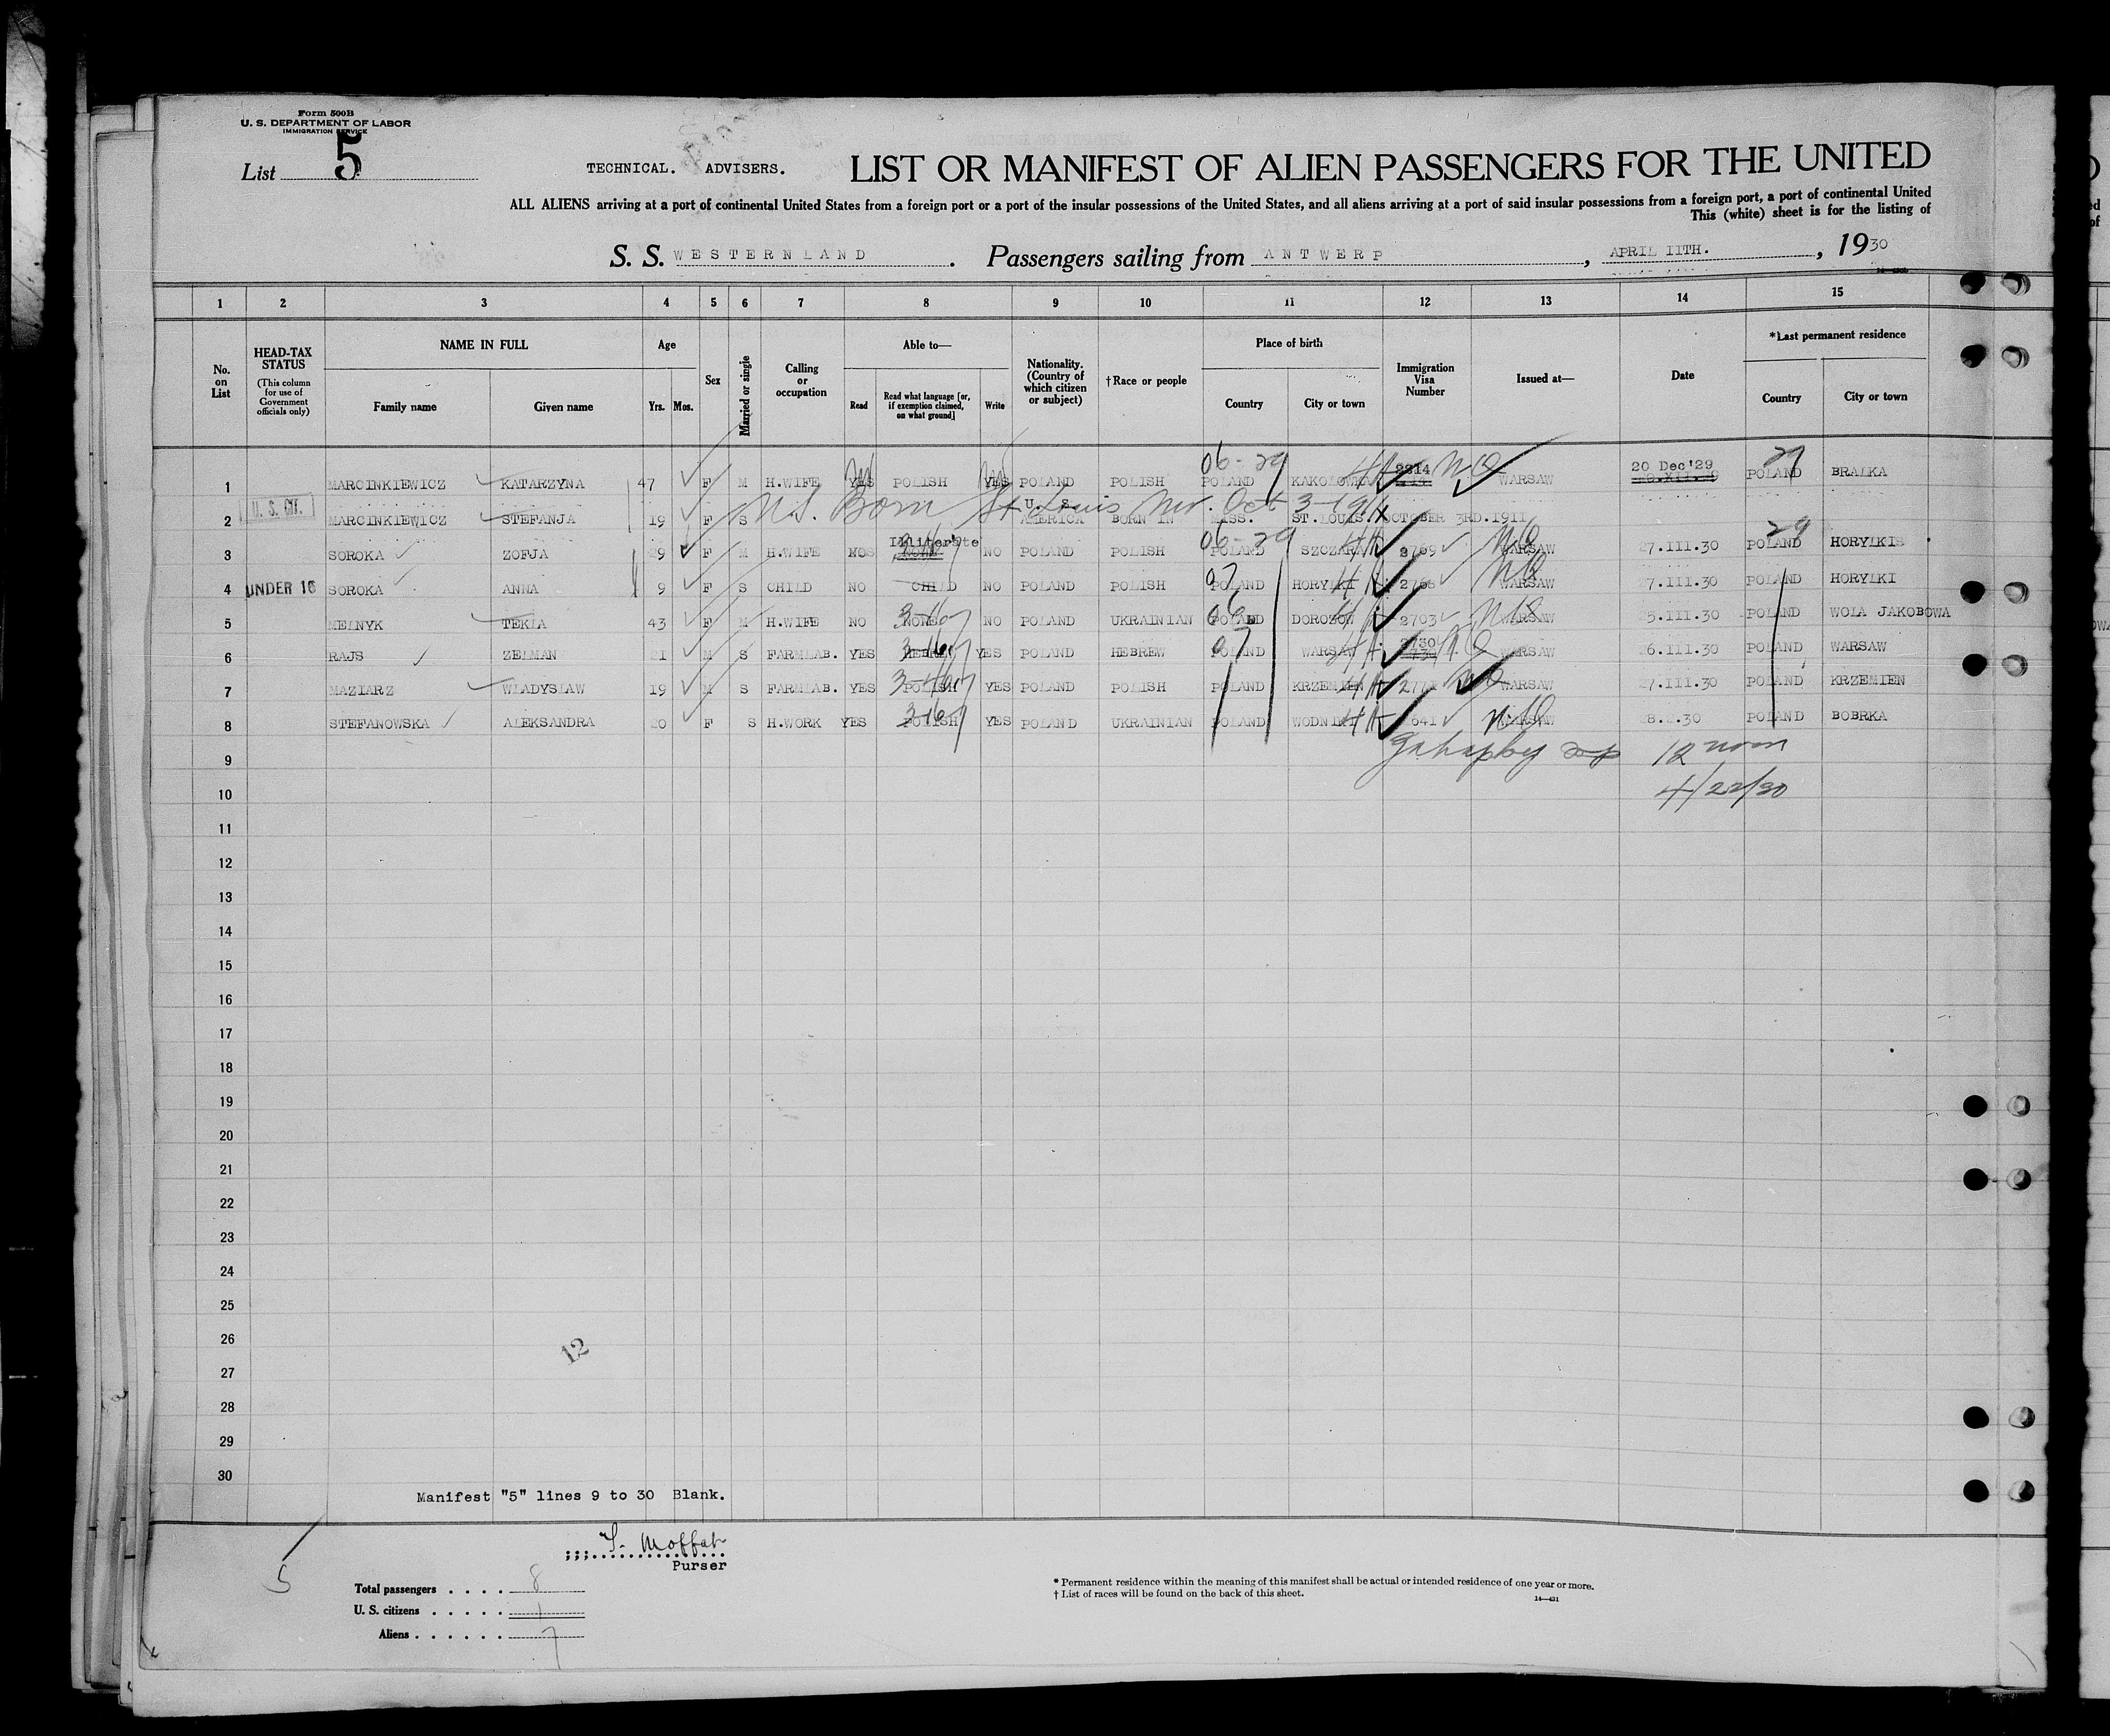 Form 500B
U. S. DEPARTMENT OF LABOR
IMMIGRATION SERVICE
List 5
TECHNICAL. ADVISERS.
LIST OR MANIFEST OF ALIEN PASSENGERS FOR THE UNITED
ALL ALIENS arriving at a port of continental United States from a foreign port or a port of the insular possessions of the United States, and all aliens arriving at a port of said insular possessions from a foreign port, a port of continental United
This (white) sheet is for the listing of
S. S. WESTERNLAND. Passengers sailing from ANTWERP, APRIL 11TH., 1930
1 2 3 4 5 6 7 8 9 10 11 12 13 14 15
No. on List
HEAD-TAX STATUS (This column for use of Government officials only)
NAME IN FULL
Family name
Given name
Age
Yrs. Mos.
Sex
Married or single
Calling or occupation
Able to—
Read
Read what language [or, if exemption claimed, on what ground]
Write
Nationality. (Country of which citizen or subject)
†Race or people
Place of birth
Country
City or town
Immigration Visa Number
Issued at—
Date
*Last permanent residence
Country
City or town
06-29
1 MARCINKIEWICZ KATARZYNA 47 F M H.WIFE YES POLISH YES POLAND POLISH POLAND KAKOLOWKA 2214 WARSAW 20 Dec'29 POLAND 29 BRALKA
U. S. CIT.
US. Born St. Louis Mo. Oct 3-1911
2 MARCINKIEWICZ STEFANJA 19 F S U. S. AMERICA BORN IN MISS. ST. LOUIS. OCTOBER 3RD.1911
06-29
3 SOROKA ZOFJA 29 F M H.WIFE NO Illiterate NO POLAND POLISH POLAND SZCZARA 2769 WARSAW 27.III.30 POLAND 29 HORYLKI
4 UNDER 16 SOROKA ANNA 9 F S CHILD NO CHILD NO POLAND POLISH POLAND HORYLKI 2768 WARSAW 27.III.30 POLAND HORYLKI
5 MELNYK TEKLA 43 F M H.WIFE NO NONE NO POLAND UKRAINIAN POLAND DOROZOW 2703 WARSAW 25.III.30 POLAND WOLA JAKOBOWA
6 RAJS ZELMAN 21 M S FARMLAB. YES HEBREW YES POLAND HEBREW POLAND WARSAW 2750 WARSAW 26.III.30 POLAND WARSAW
7 MAZIARZ WLADYSLAW 19 M S FARMLAB. YES POLISH YES POLAND POLISH POLAND KRZEMIEN 2771 WARSAW 27.III.30 POLAND KRZEMIEN
8 STEFANOWSKA ALEKSANDRA 20 F S H.WORK YES POLISH YES POLAND UKRAINIAN POLAND 641 WARSAW POLAND BOBRKA
9 12 noon
10 4/22/30
11
12
13
14
15
16
17
18
19
20
21
22
23
24
25
26
12
27
28
29
30
Manifest "5" lines 9 to 30 Blank.
Moffat
Purser
5
Total passengers . . . . 8
U. S. citizens . . . . . 1
Aliens . . . . . . 7
* Permanent residence within the meaning of this manifest shall be actual or intended residence of one year or more.
† List of races will be found on the back of this sheet.
14—431